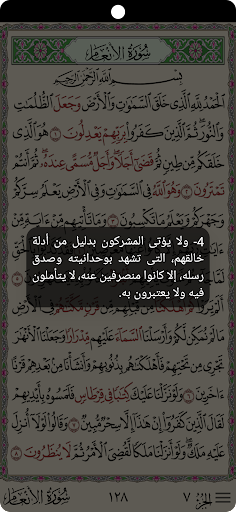 سُورَةُ الأَنْعَامِ
بِسْمِ اللَّهِ الرَّحْمَٰنِ الرَّحِيمِ
الْحَمْدُ لِلَّهِ الَّذِي خَلَقَ السَّمَٰوَٰتِ وَالْأَرْضَ وَجَعَلَ الظُّلُمَٰتِ
وَالنُّورَ ثُمَّ الَّذِينَ كَفَرُوا بِرَبِّهِمْ يَعْدِلُونَ ١ هُوَ الَّذِي
خَلَقَكُم مِّن طِينٍ ثُمَّ قَضَىٰ أَجَلًا وَأَجَلٌ مُّسَمًّى عِندَهُ ثُمَّ أَنتُمْ
تَمْتَرُونَ ٢ وَهُوَ اللَّهُ فِي السَّمَٰوَٰتِ وَفِي الْأَرْضِ يَعْلَمُ سِرَّكُمْ
وَجَهْرَكُمْ وَيَعْلَمُ مَا تَكْسِبُونَ ٣ وَمَا تَأْتِيهِم مِّنْ ءَايَةٍ مِّنْ
4- ولا يؤتى المشركون بدليل من أدلة
خالقهم، التى تشهد بوحدانيته وصدق
رسله، إلا كانوا منصرفين عنه، لا يتأملون
فيه ولا يعتبرون به.
مَا لَمْ نُمَكِّن لَّكُمْ وَأَرْسَلْنَا السَّمَاءَ عَلَيْهِم مِّدْرَارًا وَجَعَلْنَا الْأَنْهَٰرَ
تَجْرِي مِن تَحْتِهِمْ فَأَهْلَكْنَٰهُم بِذُنُوبِهِمْ وَأَنشَأْنَا مِن بَعْدِهِمْ قَرْنًا
ءَاخَرِينَ ٦ وَلَوْ نَزَّلْنَا عَلَيْكَ كِتَٰبًا فِي قِرْطَاسٍ فَلَمَسُوهُ بِأَيْدِيهِمْ
لَقَالَ الَّذِينَ كَفَرُوا إِنْ هَٰذَا إِلَّا سِحْرٌ مُّبِينٌ ٧ وَقَالُوا لَوْلَا أُنزِلَ
عَلَيْهِ مَلَكٌ وَلَوْ أَنزَلْنَا مَلَكًا لَّقُضِيَ الْأَمْرُ ثُمَّ لَا يُنظَرُونَ ٨
الجزء ٧ ١٢٨ سورة الأنعام